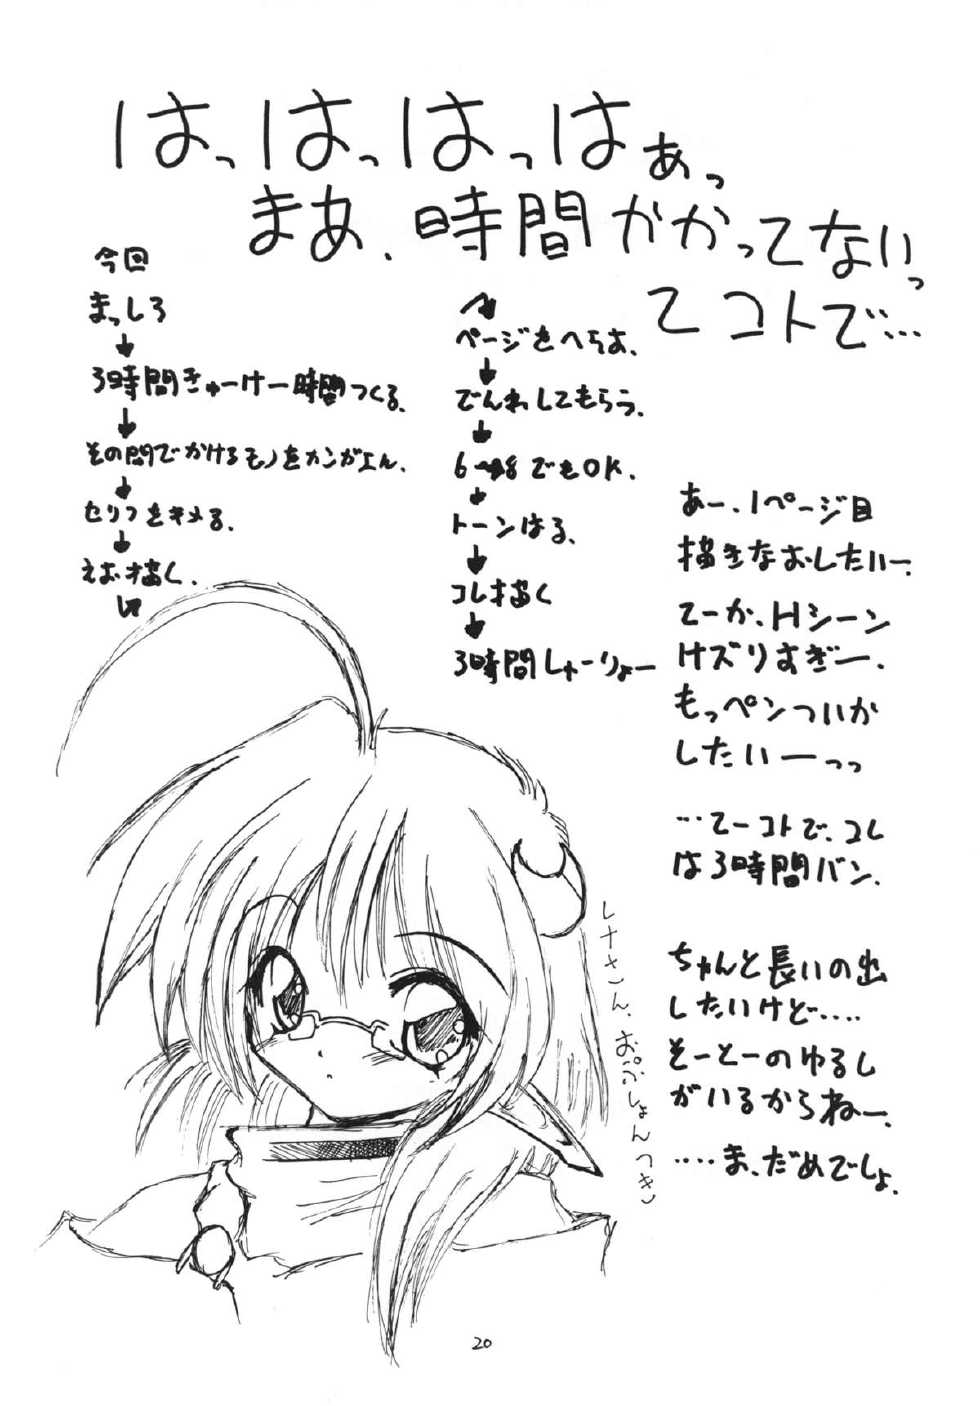 はっはっはっはぁっ
まあ、時間かかってないっ
てコトで…
今回
まっしろ
↓
3時間きゅーけー時間つくる.
↓
その間でかけるモノをカンがえん.
↓
セリフをキメる.
↓
えお描く.
ページをへらす.
↓
でんわしてもらう.
↓
6→8でもOK.
↓
トーンはる.
↓
コレ描く
↓
3時間しゅーりょー
あー、1ページ目
描きなおしたいー.
てーか、Hシーン
けズりすぎー.
もっペンついか
したいーっっ
…てーコトで、コレ
は3時間バン.
ちゃんと長いの出
したいけど….
そーとーのゆるし
がいるからねー.
….ま、だめでしょ.
レナさん、おぷしょんつき
20